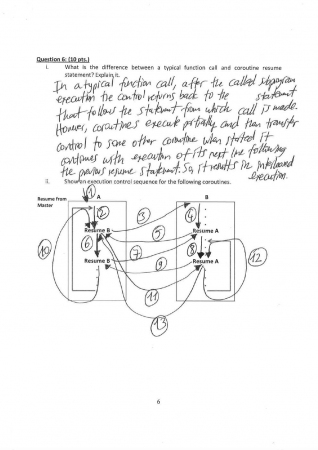 Question 6: (10 pts.)
i. What is the difference between a typical function call and coroutine resume
statement? Explain it.
In a typical function call, after the called subprogram
execution the control returns back to the statement
that follows the statement from which call is made.
However, coroutines execute partially and then transfer
control to some other coroutine when started it
continues with execution of its next line following
the previous resume statement. So, it results in interleaved
execution.
ii. Show an execution control sequence for the following coroutines.
Resume from
Master
A
B
1
2
3
4
Resume B
5
Resume A
6
7
8
10
Resume B
9
Resume A
12
11
13
6